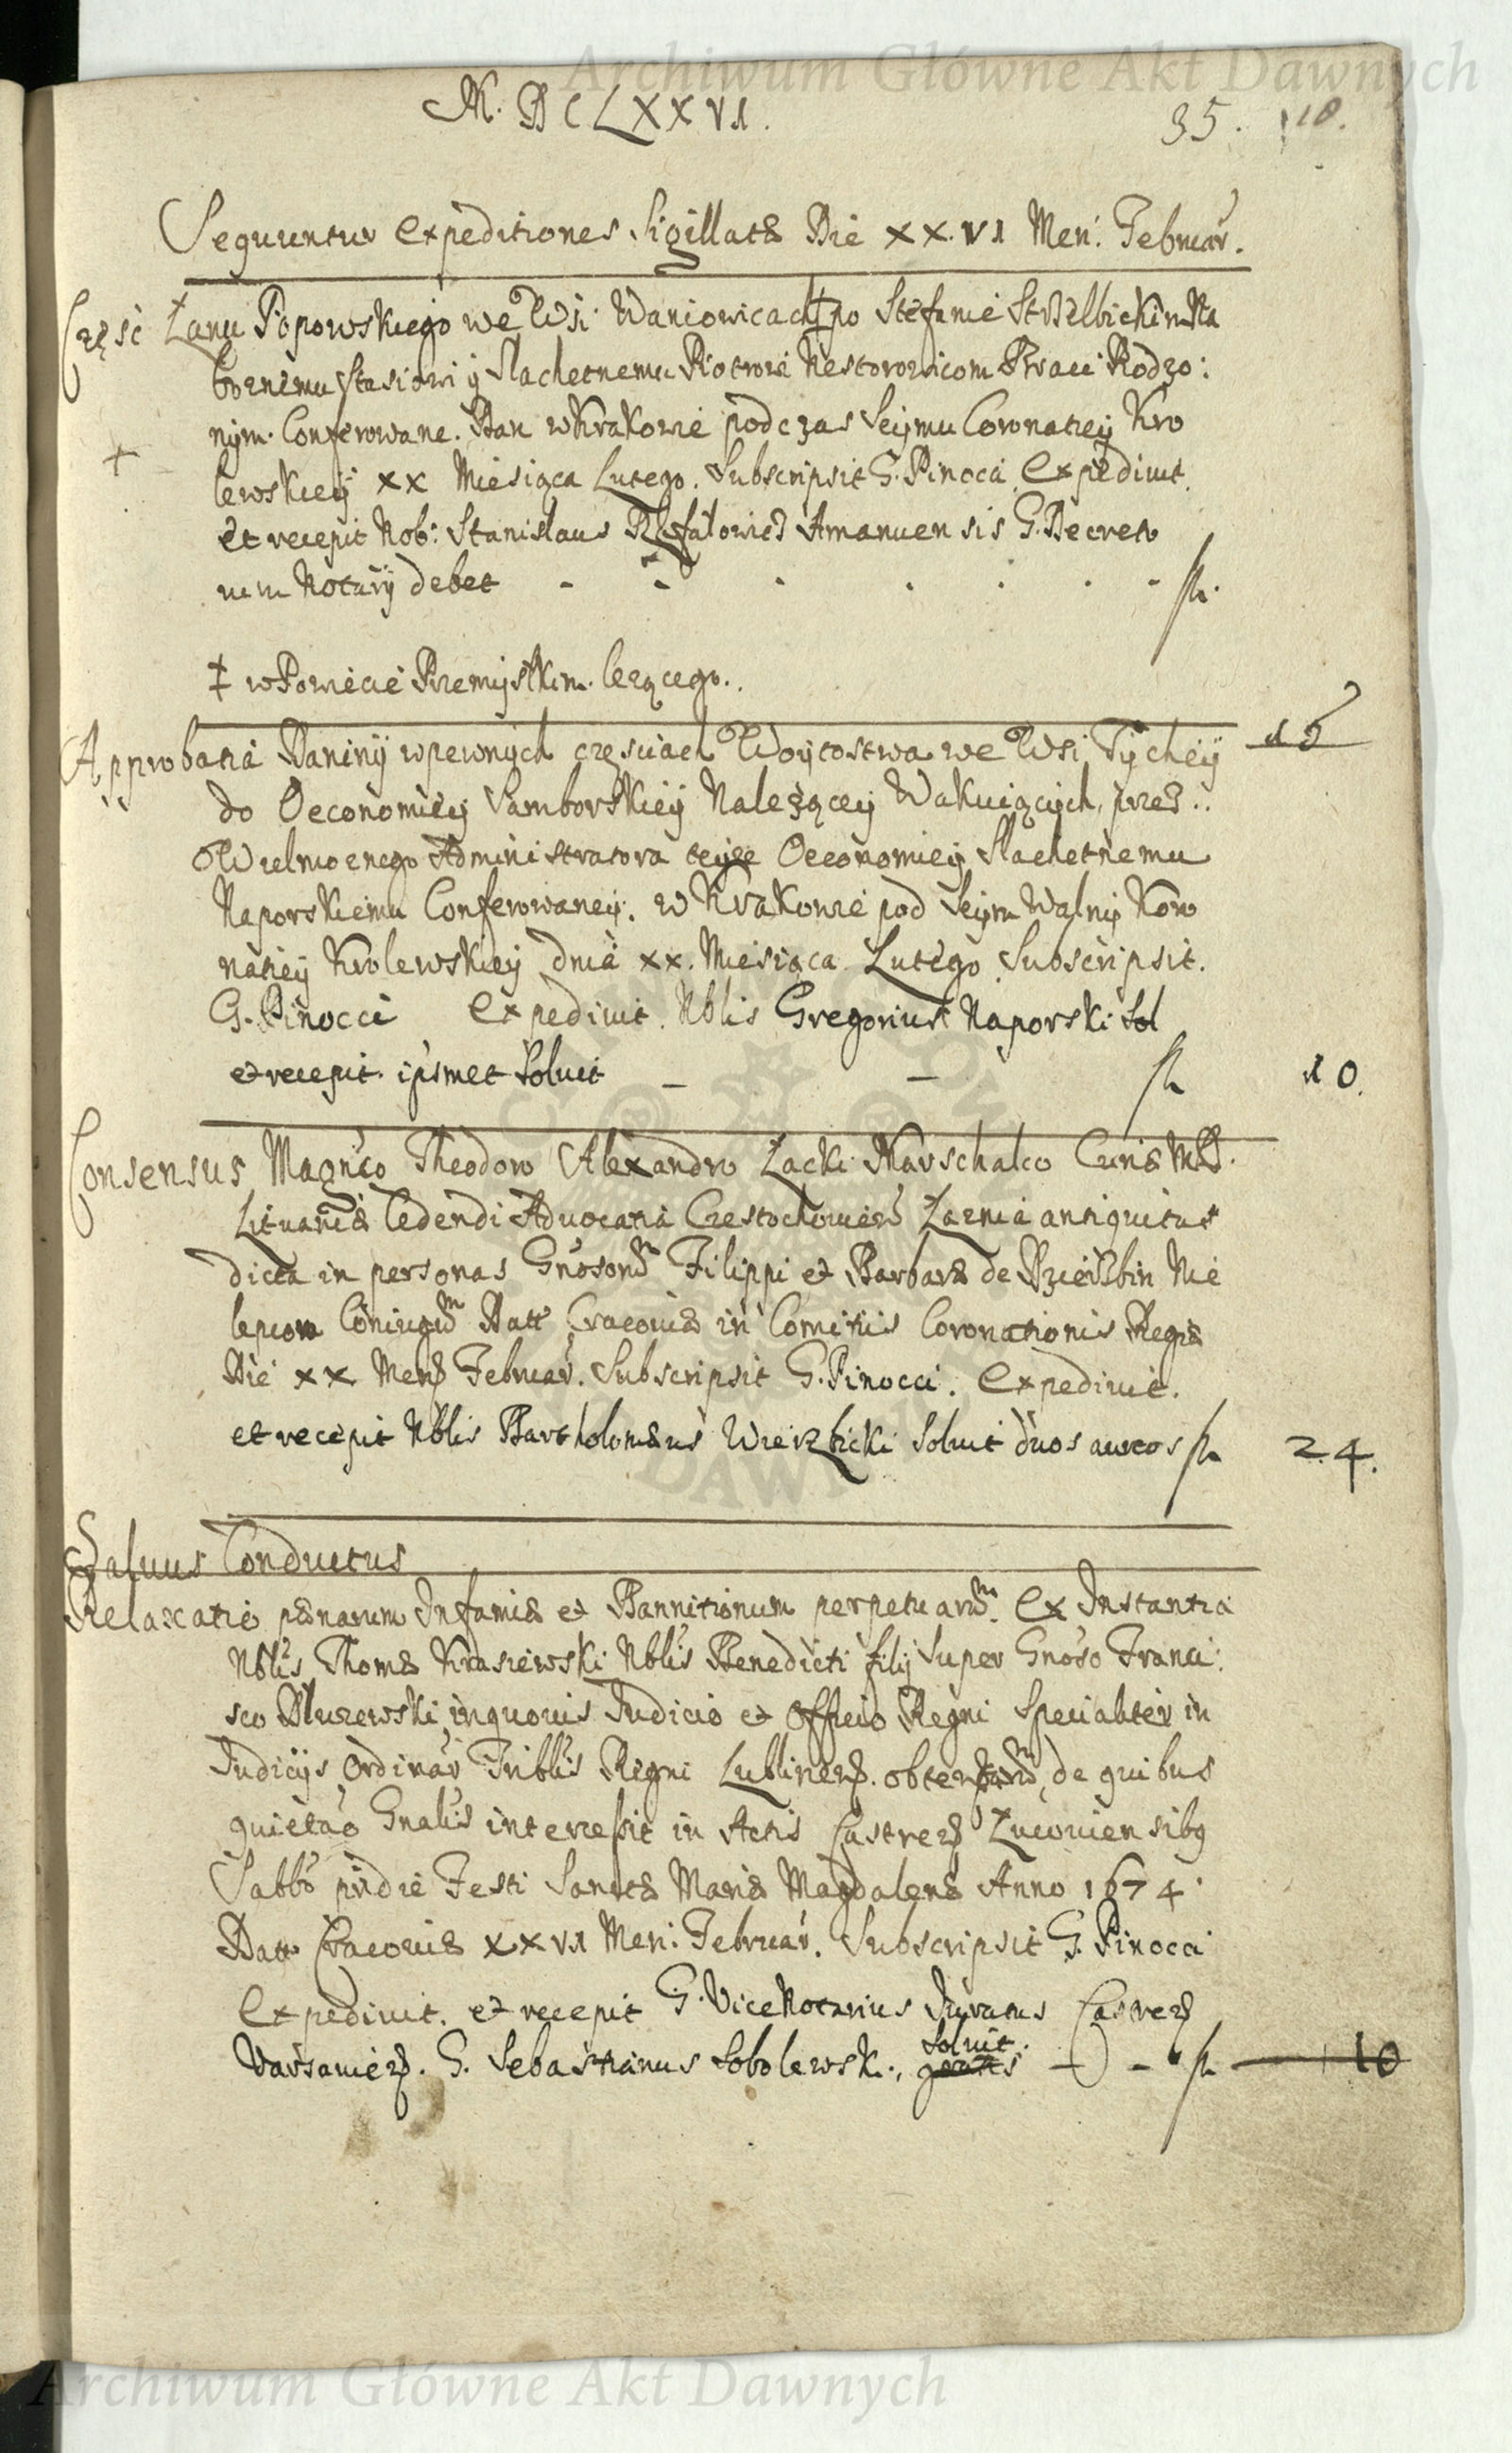 Archiwum Główne Akt Dawnych
M. DCLXXVI.
35. 18.
Sequuntur Expeditiones Sigillatæ Die XX.VI Men: Februar.
Część Łanu Popowskiego we Wsi Waniowicach ‡ po Stefanie Strzelbickim Na
bornemu Stasiowi y Slachetnemu Piotrowi Nestorowicom Braci Rodzo:
nym. Conferowane. Dan w Krakowie podczas Seymu Coronatiey Kro
lewskiey XX Miesiąca Lutego. Subscripsit G. Pinocci Expedivit
et recepit Nob: Stanislaus Amanuensis G. Decreto
rum Notarÿ debet - - - - fl.
‡ w Powiecie Przemyskim. lezącego.
Approbatia Daniny w pewnych częściach Woytostwa we Wsi Tychey 15
do Oeconomiey Samborskiey Nalezącey Wakuiących, przez
Wielmoznego Administratora teyze Oeconomiey Slachetnemu
Naporskiemu Conferowaney. w Krakowie pod Seym Walny Koro
natiey Krolewskiey dnia XX. Miesiąca Lutego Subscripsit.
G. Pinocci Expedivit. Nblis Gregorius Naporski Sol
et recepit ipsmet Solvit - - fl 10.
Consensus Magnco Theodoro Alexandro Łacki Marschalco Curiæ M.D.
Lituaniæ Cedendi Advocatia Czestochowien Łaznia antiquitus
dicta in personas Gnosorum Filippi et Barbaræ de Nie
Coniugum Datt Cracoviæ in Comitiis Coronationis Regiæ
Die XX Mens Februar. Subscripsit G. Pinocci. Expedivit.
et recepit Nblis Bartholomæus Wierzbicki Solvit duos aureos fl 24.
Salvus Conductus
Relaxatio pænarum Infamiæ et Bannitionum perpetuarum. Ex Instantia
Nblis Thomæ Krasiewski Nblis Benedicti filij Super Gnoso Franci:
sco Dluzewski, in quovis Judicio et Officio Regni Specialiter in
Judicijs Ordinar Triblis Regni Lublinens. de quibus
quietao Gnalis intercessit in Actis Castrens Łucoviensibus
Sabbo pridie Festi Sanctæ Mariæ Magdalenæ Anno 1674
Datt Cracoviæ XXVI Men: Februar. Subscripsit G. Pinocci
Expedivit. et recepit G. ViceNotarius Juratus Castrens
Varsaviens. G. Sebastianus Sobolewski, gratis Solvit. - - fl 10
Archiwum Główne Akt Dawnych